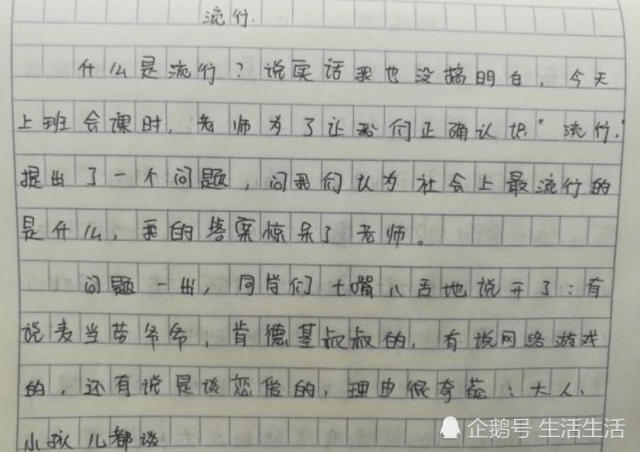 流行.
什么是流行?说实话我也没搞明白,今天
上班会课时,老师为了让我们正确认识"流行,"
提出了一个问题,问我们认为社会上最流行的
是什么,我的答案惊呆了老师。
问题一出,同学们七嘴八舌地说开了:有
说麦当劳爷爷,肯德基叔叔的,有说网络游戏
的,还有说是谈恋爱的,理由很奇葩:大人、
小孩儿都谈
企鹅号 生活生活